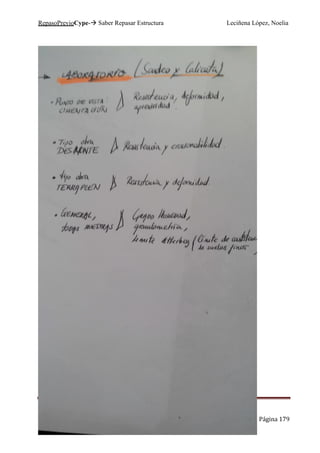 RepasoPrevioCype-→ Saber Repasar Estructura Leciñena López, Noelia
→ LABORATORIO (Sondeo y Calicata)
• PUNTO DE VISTA CIMENTACIÓN
Resistencia, deformidad,
agresividad.
• Tipo obra DESMONTE
Resistencia y excavabilidad.
• Tipo obra TERRAPLÉN
Resistencia y deformidad.
• GENERAL,
todas
Grado Humedad,
granulometría,
límite Atterberg (límite de
de suelos finos
Página 179